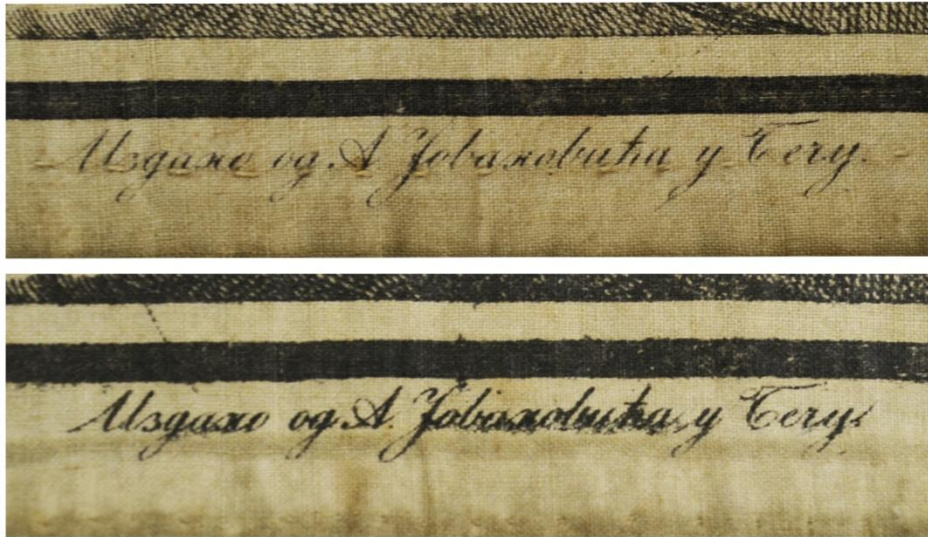 Издано од А. Јовановића у Бечу.
Издано од А. Јовановића у Бечу.